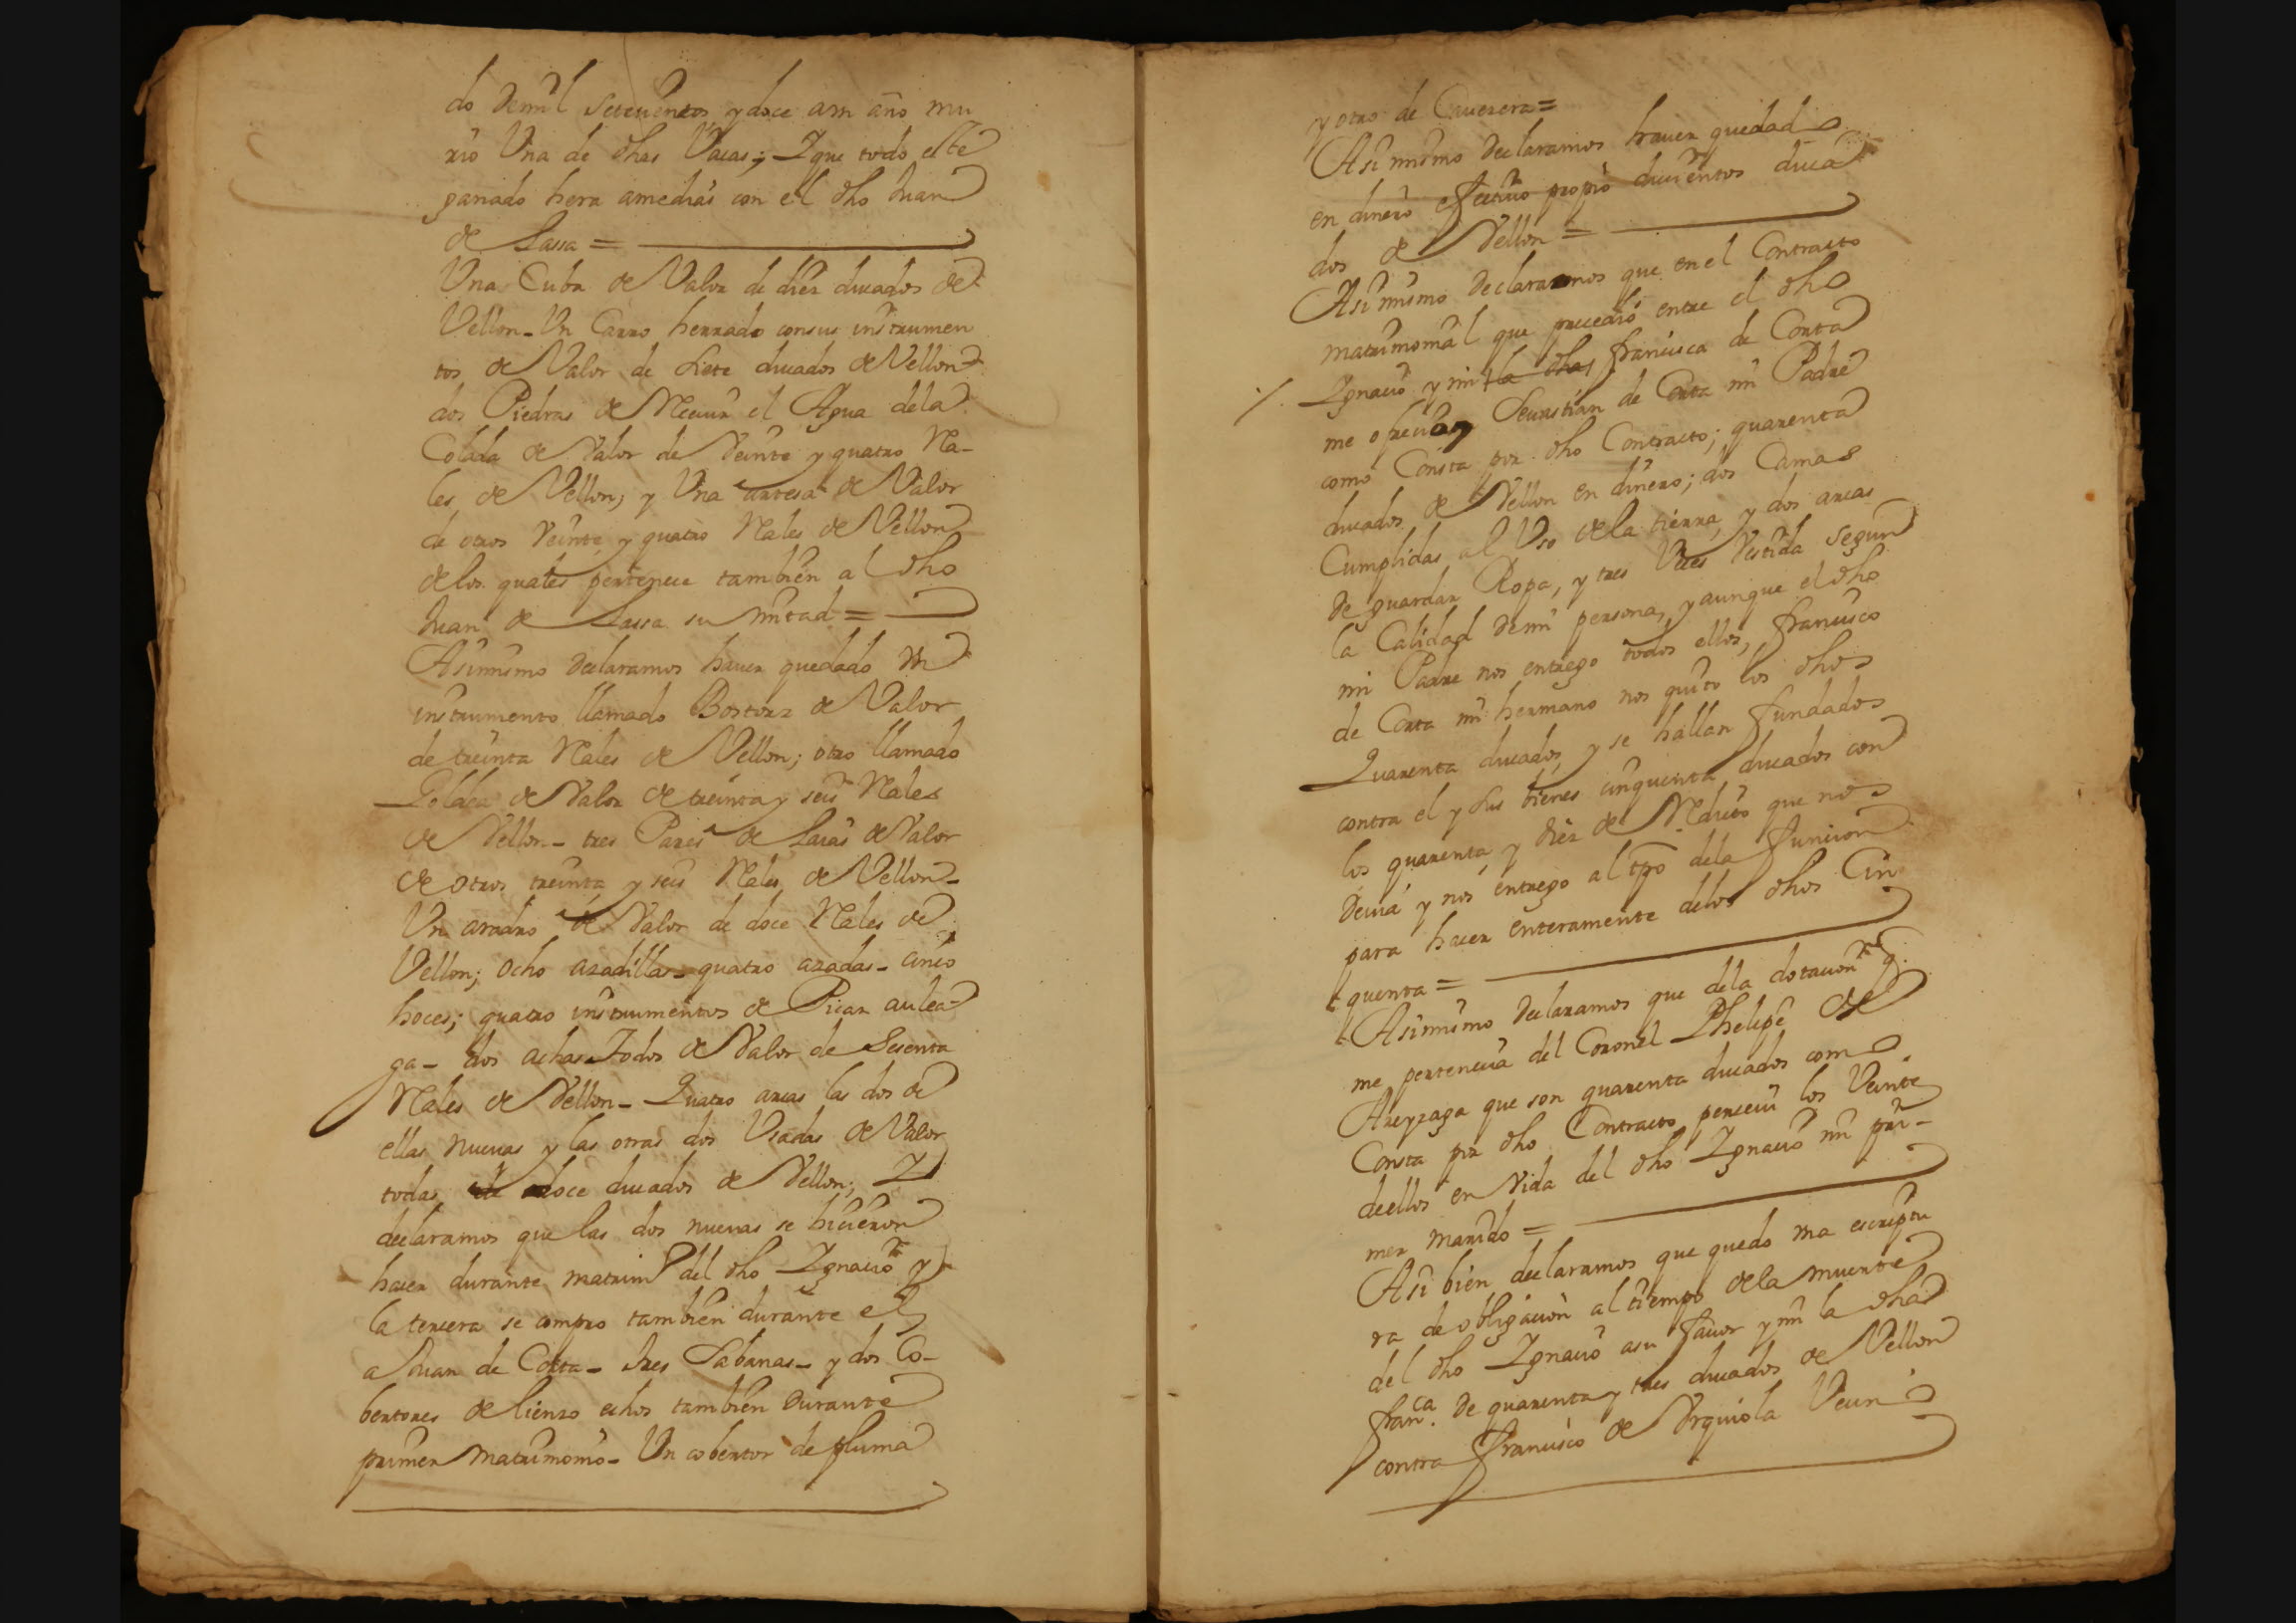 do de mil setecientos y doce am año mu
rio Una de dhas Vacas; Y que todo este
ganado hera amedias con el dho Juan
de Lassa =
Una Cuba de Valor de diez ducados de
Vellon - Un Carro herrado con sus instrumen
tos de Valor de siete ducados de Vellon -
dos Piedras de el Agua de la
Colada de Valor de Veinte y quatro Rea-
les de Vellon; y Una artesa de Valor
de otros Veinte y quatro Rales de Vellon
delos quales pertenece tambien al dho
Juan de Lassa su mitad =
Asimismo declaramos haver quedado Un
instrumento llamado Bostorz de Valor
de treinta Rales de Vellon; otro llamado
de Valor de treinta y seis Rales
de Vellon - tres Pares de Laias de Valor
de otros treinta y seis Rales de Vellon -
Un aradro de Valor de doce Rales de
Vellon; ocho azadillas - quatro azadas - cinco
hoces; quatro instrumentos de Picar aulea-
ga - dos achas Todos de Valor de Sesenta
Rales de Vellon - Quatro arcas las dos de
ellas nuevas y las otras dos Usadas de Valor
todas de doce ducados de Vellon; Y
declaramos que las dos nuevas se hicieron
hacer durante matrim.l del dho Ygnacio y
la tercera se compro tambien durante el
a Juan de Corta - tres Sabanas - y dos Co-
bertores de lienzo echos tambien Durante
primer Matrimonio - Un cobertor de pluma
y otro de Cavezera =
Asimismo declaramos haver quedado
en dinero efectivo propio ducientos duca
dos de Vellon =
Asimismo declaramos que en el Contracto
matrimonial que precedió entre el dho
Ygnacio y mi la dha francisca de Corta
me ofrecio Sevastian de Corta mi Padre
como Consta por dho Contracto; quarenta
ducados de Vellon en dinero; dos Camas
Cumplidas al Uso de la tierra, y dos arcas
de guardar Ropa, y tres Vezes Vestida segun
la Calidad de mi persona, y aunque el dho
mi Padre nos entrego todos ellos, francisco
de Corta mi hermano nos quito los dhos
Quarenta ducados, y se hallan fundados
contra el y sus bienes cinquenta ducados con
los quarenta y diez de Redito que nos
Devia y nos entrego al tpo dela funcion
para hacer enteramente delos dhos Cin
quenta =
Asimismo declaramos que dela dotacion q.
me pertenecia del Coronel Phelipe de
Areyzaga que son quarenta ducados como
Consta por dho Contracto percevi los Veinte
deellos en Vida del dho Ygnacio mi pri-
mer marido =
Asi bien declaramos que quedo una escriptu
ra de obligacion al tiempo dela muerte
del dho Ygnacio asu favor y mi la dha
fran.ca de quarenta y tres ducados de Vellon
contra francisco de Vrquiola Vecino